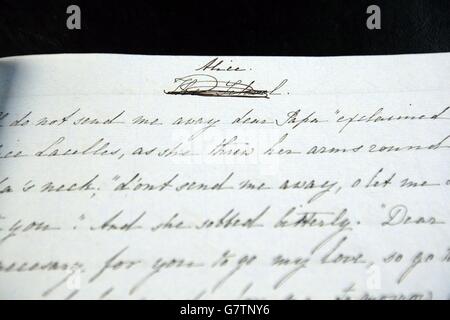 Alice.
do not send me away dear Papa" exclaimed
Lacelles, as she threw her arms round
's neck, "don't send me away, o let me
you." And she sobbed bitterly. "Dear
necesary, for you to go my love, so go
alamy
Image ID: G7TNY6
www.alamy.com